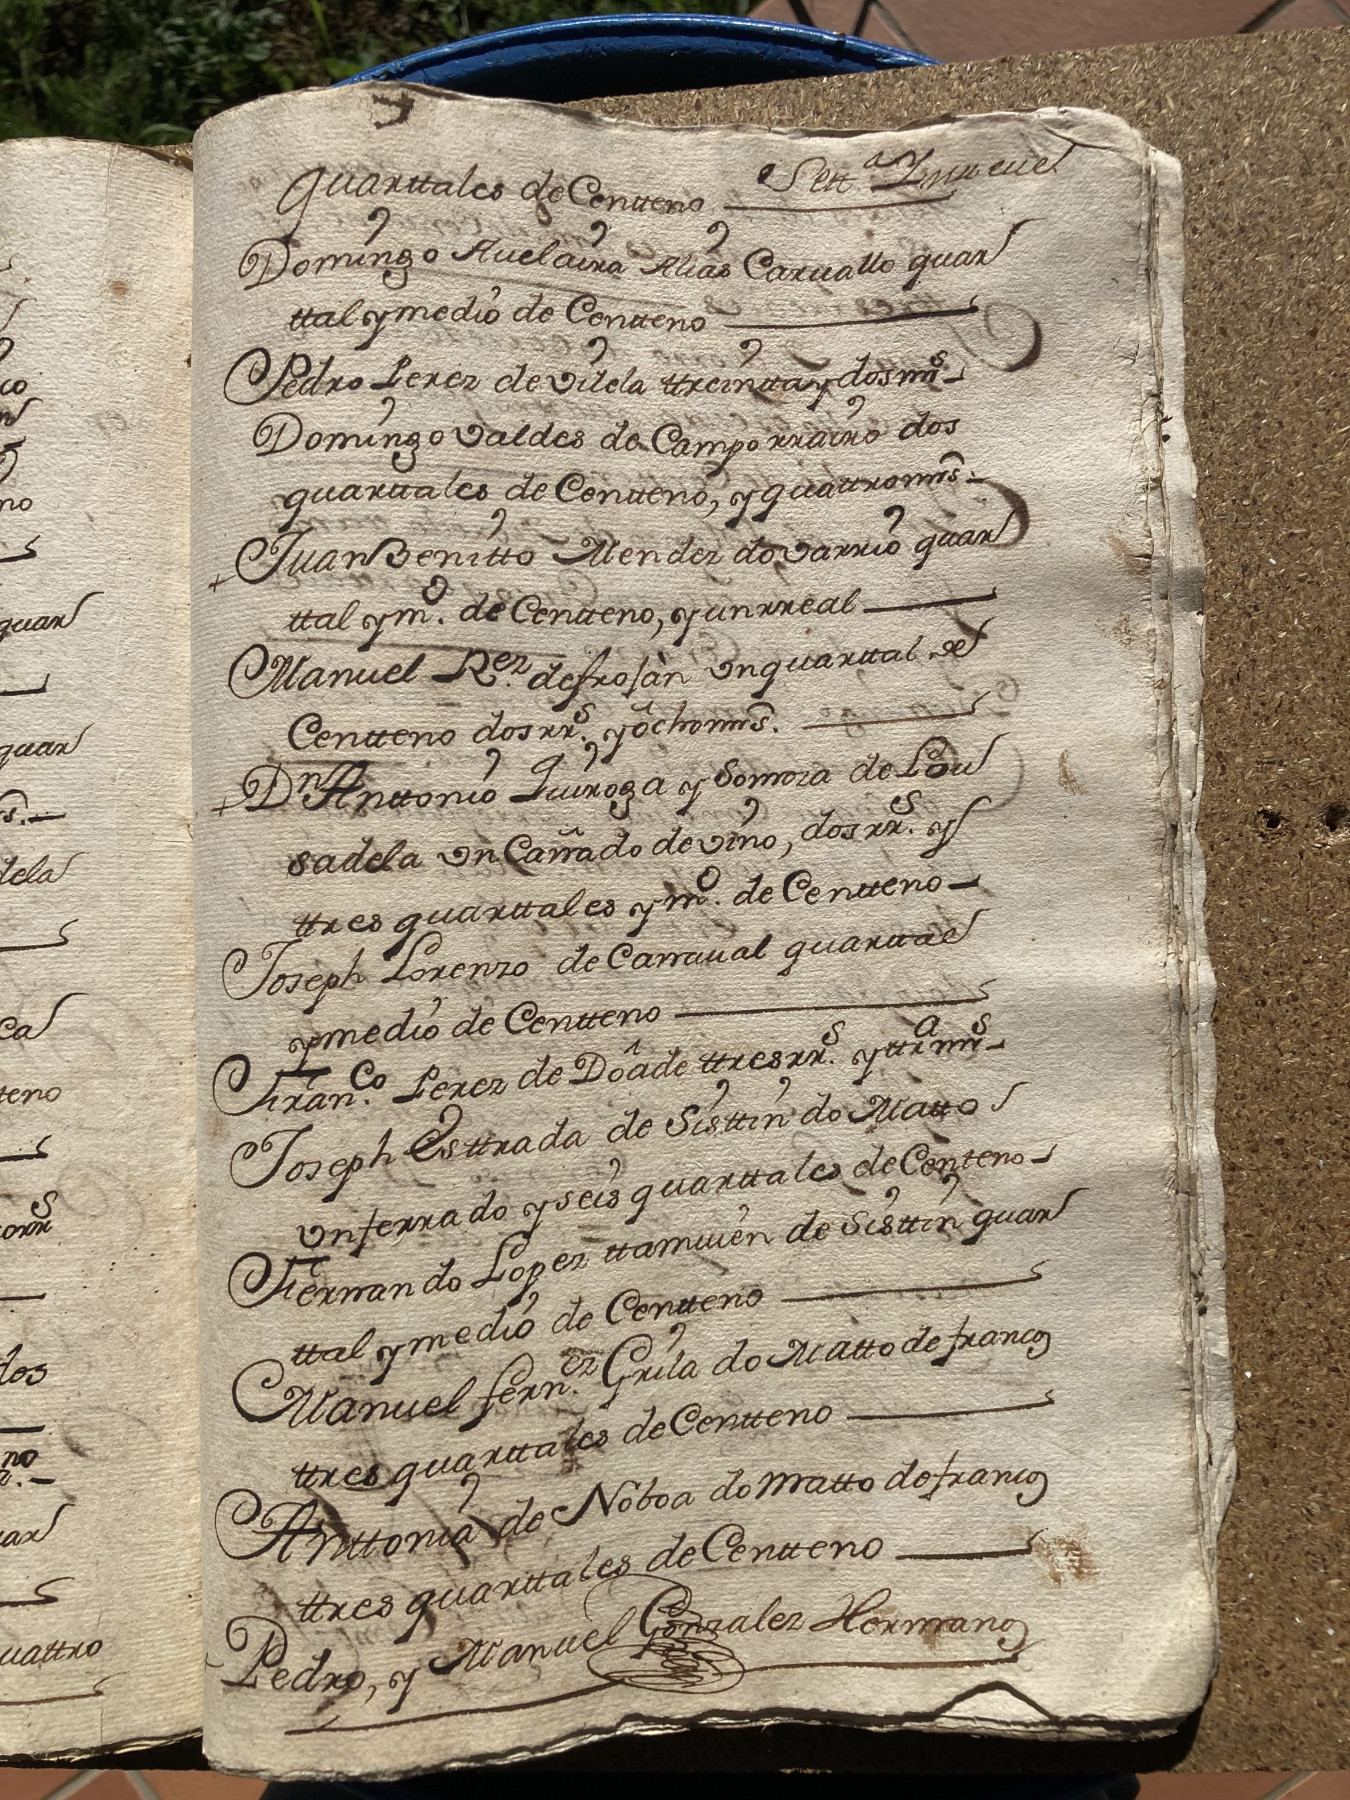 Sett.ª Y nueuel
quarttales de Centteno
Domingo Auelaira Alias Caruallo quar
ttal y medio de Centteno
Pedro Perez de vilela ttreintta y dos mrs
Domingo Valdes de Camporrairo dos
quarttales de Centteno, y quattro mrs.
Juan Benitto Mendez do varrio quar
ttal y mº. de Centteno, y un rreal
Manuel Rez. de frojan un quarttal de
Centteno dos rrs. y ôcho mrs.
Dn Anttonio Quiroga y Somoza de Lou
sadela un Carrado de vino, dos rrs. y
ttres quarttales y mº. de Centteno
Joseph Lorenzo de Carraual quarttal
y medio de Centteno
Franco. Perez de Dôade ttres rrs. y ttrª mrs
Joseph Esttrada de Sisttin do Matto
un ferrado y seis quarttales de Centeno
Fernando Lopez ttamuien de Sisttin quar
ttal y medio de Centteno
Manuel fernez. Grila do Matto de franco
ttres quarttales de Centteno
Anttonia de Nôboa do Matto de franco
ttres quarttales de Centteno
Pedro, y Manuel Gonzalez Hermano
quar
quar
dela
ca
teno
dos
no
uattro